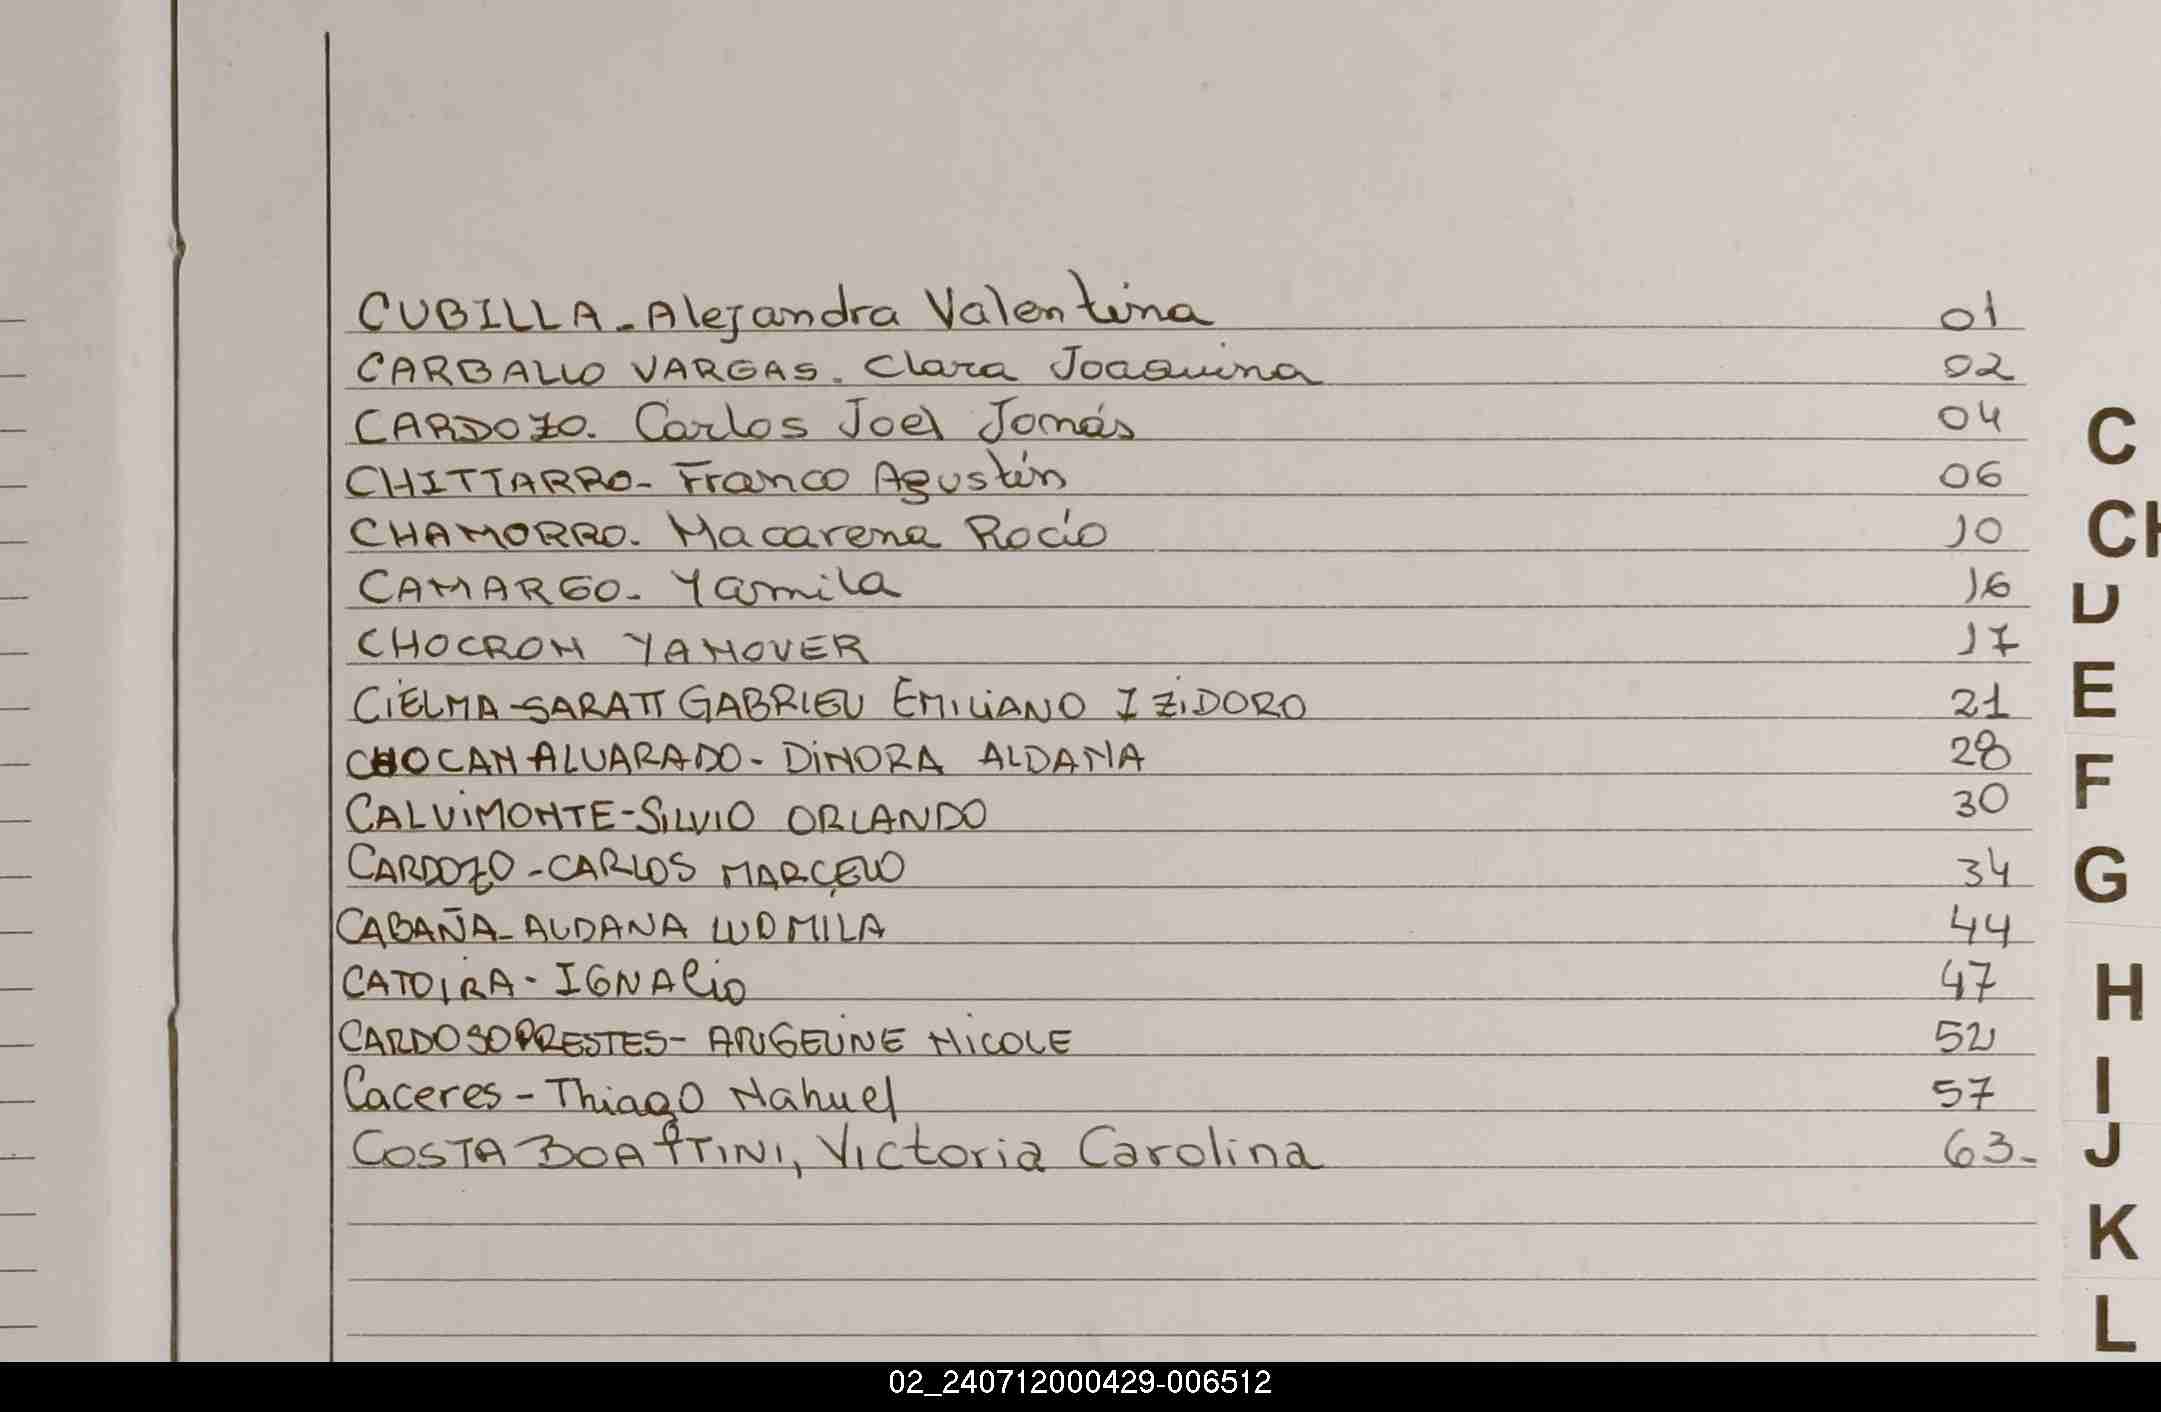 CUBILLA - Alejandra Valentina 01
CARBALLO VARGAS. Clara Joaquina 02
CARDOZO. Carlos Joel Tomás 04
CHITTARRO - Franco Agustín 06
CHAMORRO. Macarena Rocío 10
CAMARGO - Yamila 16
CHOCRON YANOVER 17
CIELMA - SARATT GABRIEL EMILIANO IZIDORO 21
CHOCAN ALVARADO - DINORA ALDANA 28
CALVIMONTE - SILVIO ORLANDO 30
CARDOZO - CARLOS MARCELO 34
CABAÑA - ALDANA LUDMILA 44
CATOIRA - IGNACIO 47
CARDOSO PRESTES - NICOLE 52
Caceres - Thiago Nahuel 57
COSTA BOATTINI, Victoria Carolina 63-
C
CH
D
E
F
G
H
I
J
K
L
02_240712000429-006512